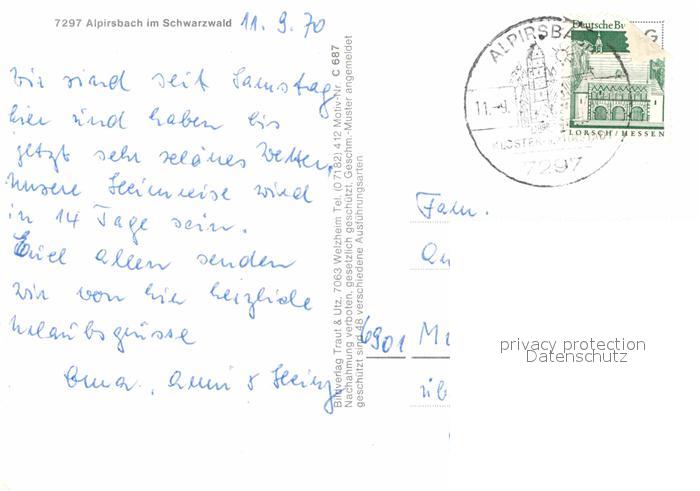 7297 Alpirsbach im Schwarzwald
11. 9. 70
Wir sind seit Samstag
hier und haben bis
jetzt sehr schönes Wetter.
Unsere Heimreise wird
in 14 Tage sein.
Euch allen senden
wir von hier herzliche
Urlaubsgrüsse
Oma, Anni & Heinz
Bildverlag Traut & Utz, 7063 Welzheim Tel. (07182) 412 Motiv-Nr. C 687
Nachahmung verboten, gesetzlich geschützt, Geschm.-Muster angemeldet
geschützt sind 48 verschiedene Ausführungsarten
ALPIRSBACH
11.-9.
7297
Deutsche Bu
G
LORSCH/HESSEN
Fam.
6901
üb
privacy protection
Datenschutz